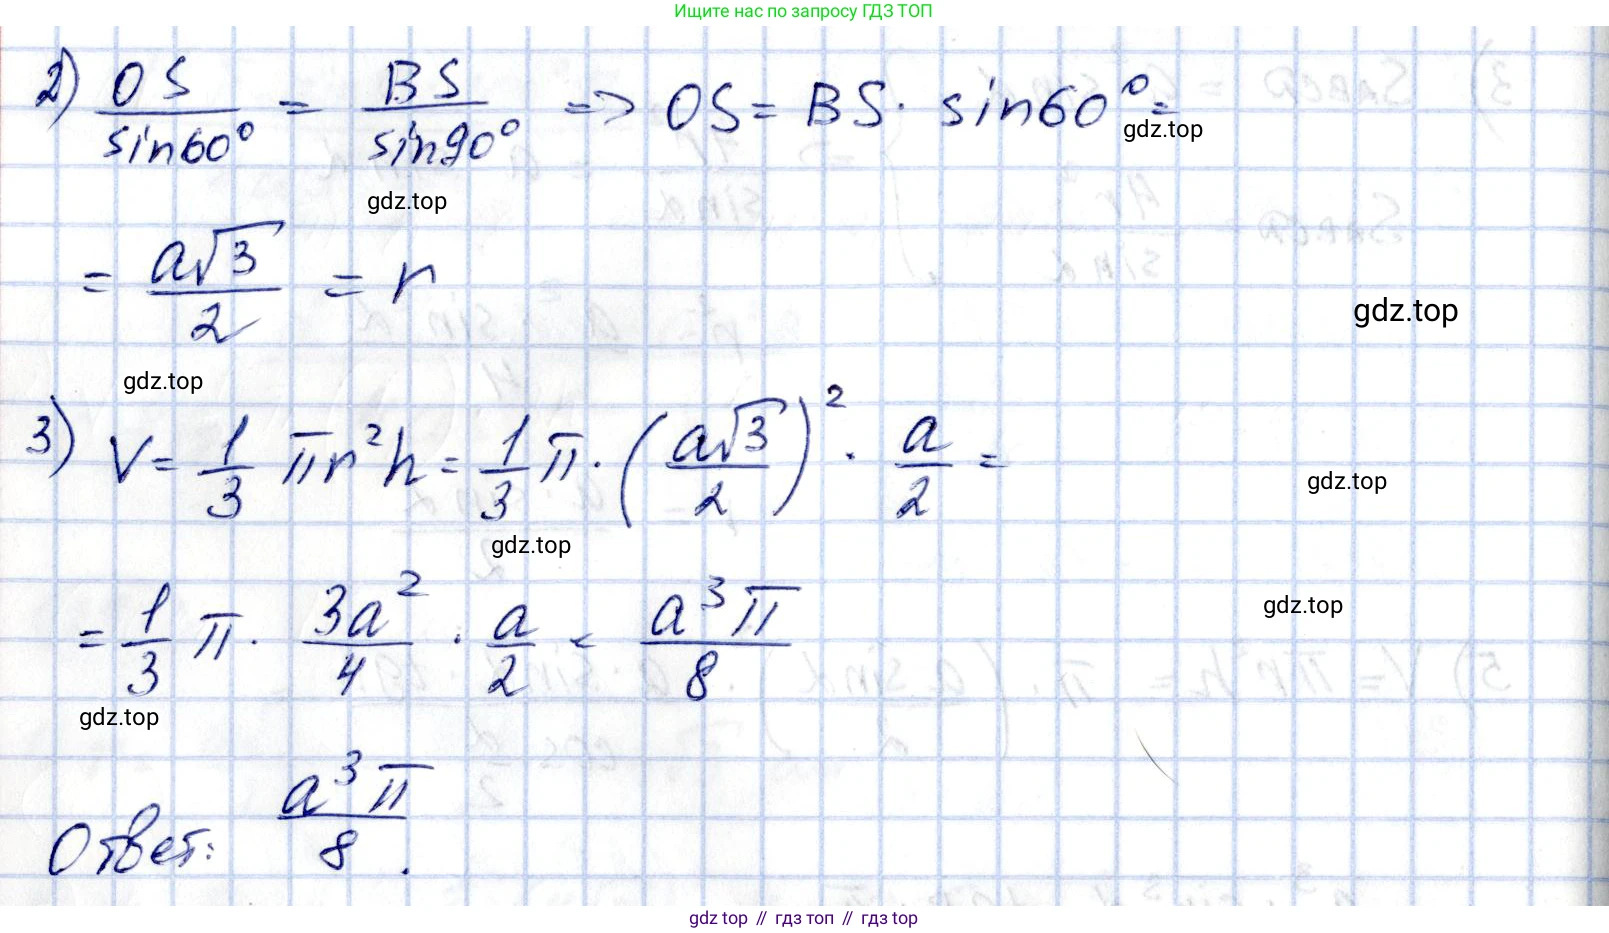 Ищите нас по запросу ГДЗ ТОП
2) OS/sin60° = BS/sin90° => OS = BS · sin60° =
gdz.top
gdz.top
= a√3/2 = r
gdz.top
gdz.top
3) V = 1/3 πr²h = 1/3 π · (a√3/2)² · a/2 =
gdz.top
gdz.top
= 1/3 π · 3a²/4 · a/2 = a³π/8
gdz.top
gdz.top
Ответ: a³π/8.
gdz top // гдз топ // gdz top